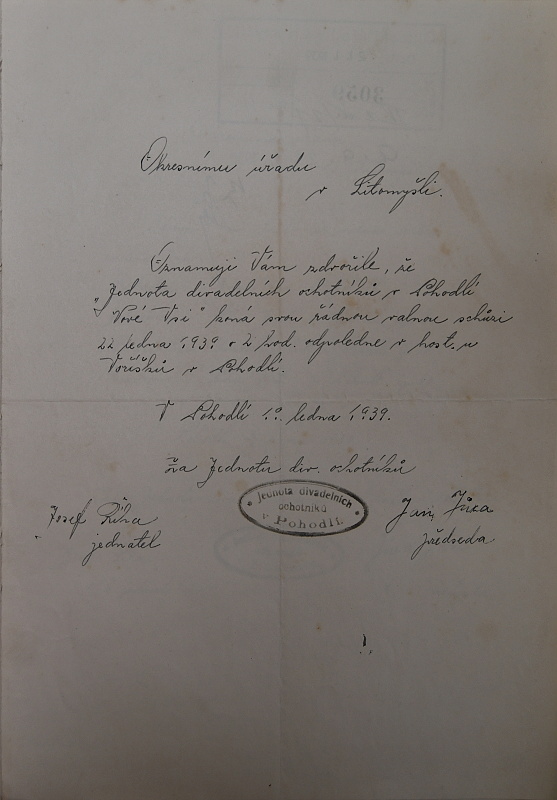 Okresnímu úřadu
v Litomyšli.
Oznamuji Vám zdvořile, že
„Jednota divadelních ochotníků v Pohodlí
Nové Vsi" koná svou řádnou valnou schůzi
22 ledna 1939 o 2 hod. odpoledne v host. u
Voříšků v Pohodlí.
V Pohodlí 10. ledna 1939.
Za Jednotu div. ochotníků
Josef Říha
jednatel
Jednota divadelních
ochotníků
v Pohodlí.
Jan
předseda